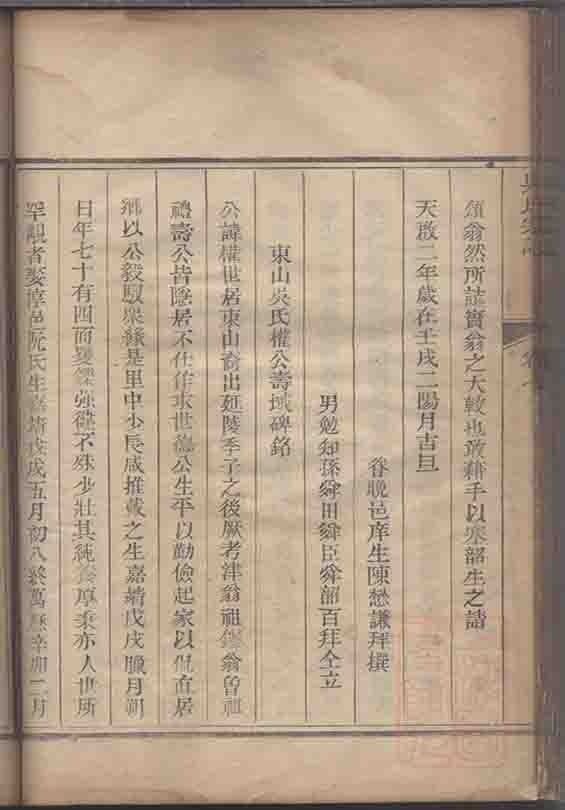 頌翁然所誌實翁之大較也敢藉手以塞韶生之請
天啟二年歲在壬戌二陽月吉旦
眷晚邑庠生陳懋謙拜撰
男勉知孫舜田舜臣舜韶百拜仝立
東山吳氏權公壽域碑銘
公諱權世居東山裔出延陵季子之後厥考津翁祖鑑翁曾祖
禮壽公皆隱居不仕作求世德公生平以勤儉起家以侃直居
鄉以公毅馭眾緣是里中少長咸推戴之生嘉靖戊戌臘月朔
日年七十有四而矍鑠強健不殊少壯其純養厚秉亦人世所
罕覯者娶淳邑阮氏生嘉靖戊戌五月初八終萬曆辛卯二月